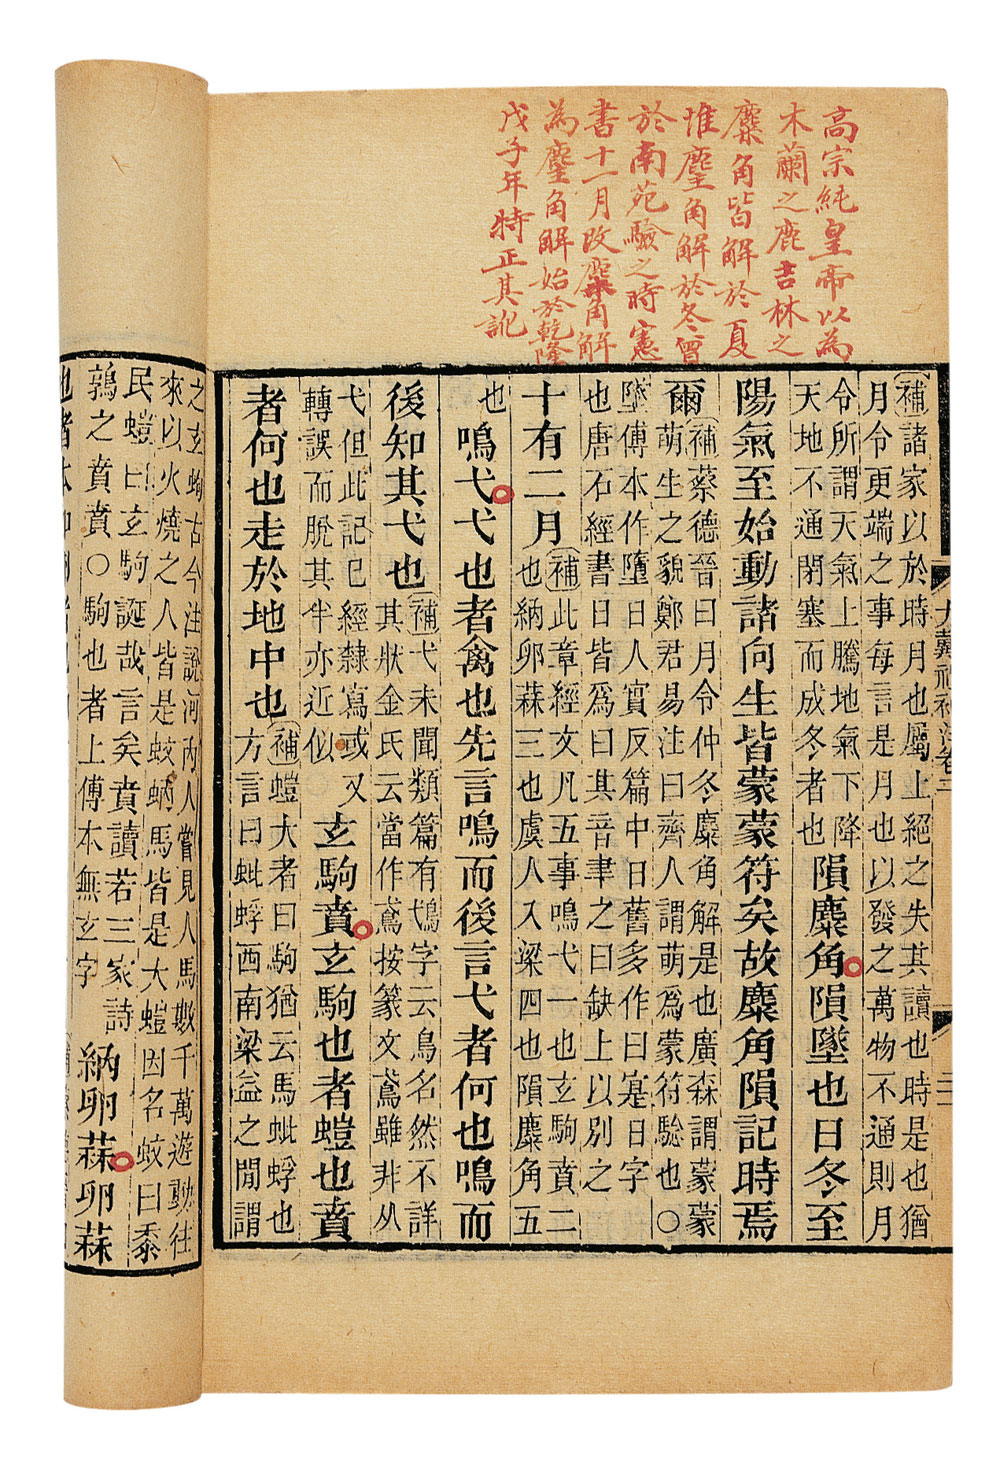 高宗純皇帝以為
木蘭之鹿吉林之
麋角皆解於夏
惟麈角解於冬曾
於南苑驗之時憲
書十一月改麋角解
為麈角解始於乾隆
戊子年特正其訛
補諸家以於時月也屬上絕之失其讀也時是也猶
月令更端之事每言是月也以發之萬物不通則月
令所謂天氣上騰地氣下降
天地不通閉塞而成冬者也
隕麋角隕墜也日冬至
陽氣至始動諸向生皆蒙蒙符矣故麋角隕記時焉
爾
補蔡德晉曰月令仲冬麋角解是也廣森謂蒙蒙
萌生之貌鄭君易注曰齊人謂萌爲蒙符驗也〇
墜傅本作墮日人實反篇中日舊多作曰寔日字
也唐石經書日皆爲曰其音聿之曰缺上以別之
十有二月
補此章經文凡五事鳴弋一也玄駒賁二
也納卵蒜三也虞人入梁四也隕麋角五
也
鳴弋弋也者禽也先言鳴而後言弋者何也鳴而
後知其弋也
補弋未聞類篇有鳶字云鳥名然不詳
其狀金氏云當作鳶按篆文鳶雖非从
弋但此記已經隸寫或又
轉誤而脫其半亦近似
玄駒賁玄駒也者螘也賁
者何也走於地中也
補螘大者曰駒猶云馬蚍蜉也
方言曰蚍蜉西南梁益之閒謂
之玄蚼古今注說河內人嘗見人馬數千萬遊動往
來以火燒之人皆是蚊蚋馬皆是大螘因名蚊曰黍
民螘曰玄駒誕哉言矣賁讀若三家詩
鶉之賁賁〇駒也者上傅本無玄字
納卵蒜卵蒜